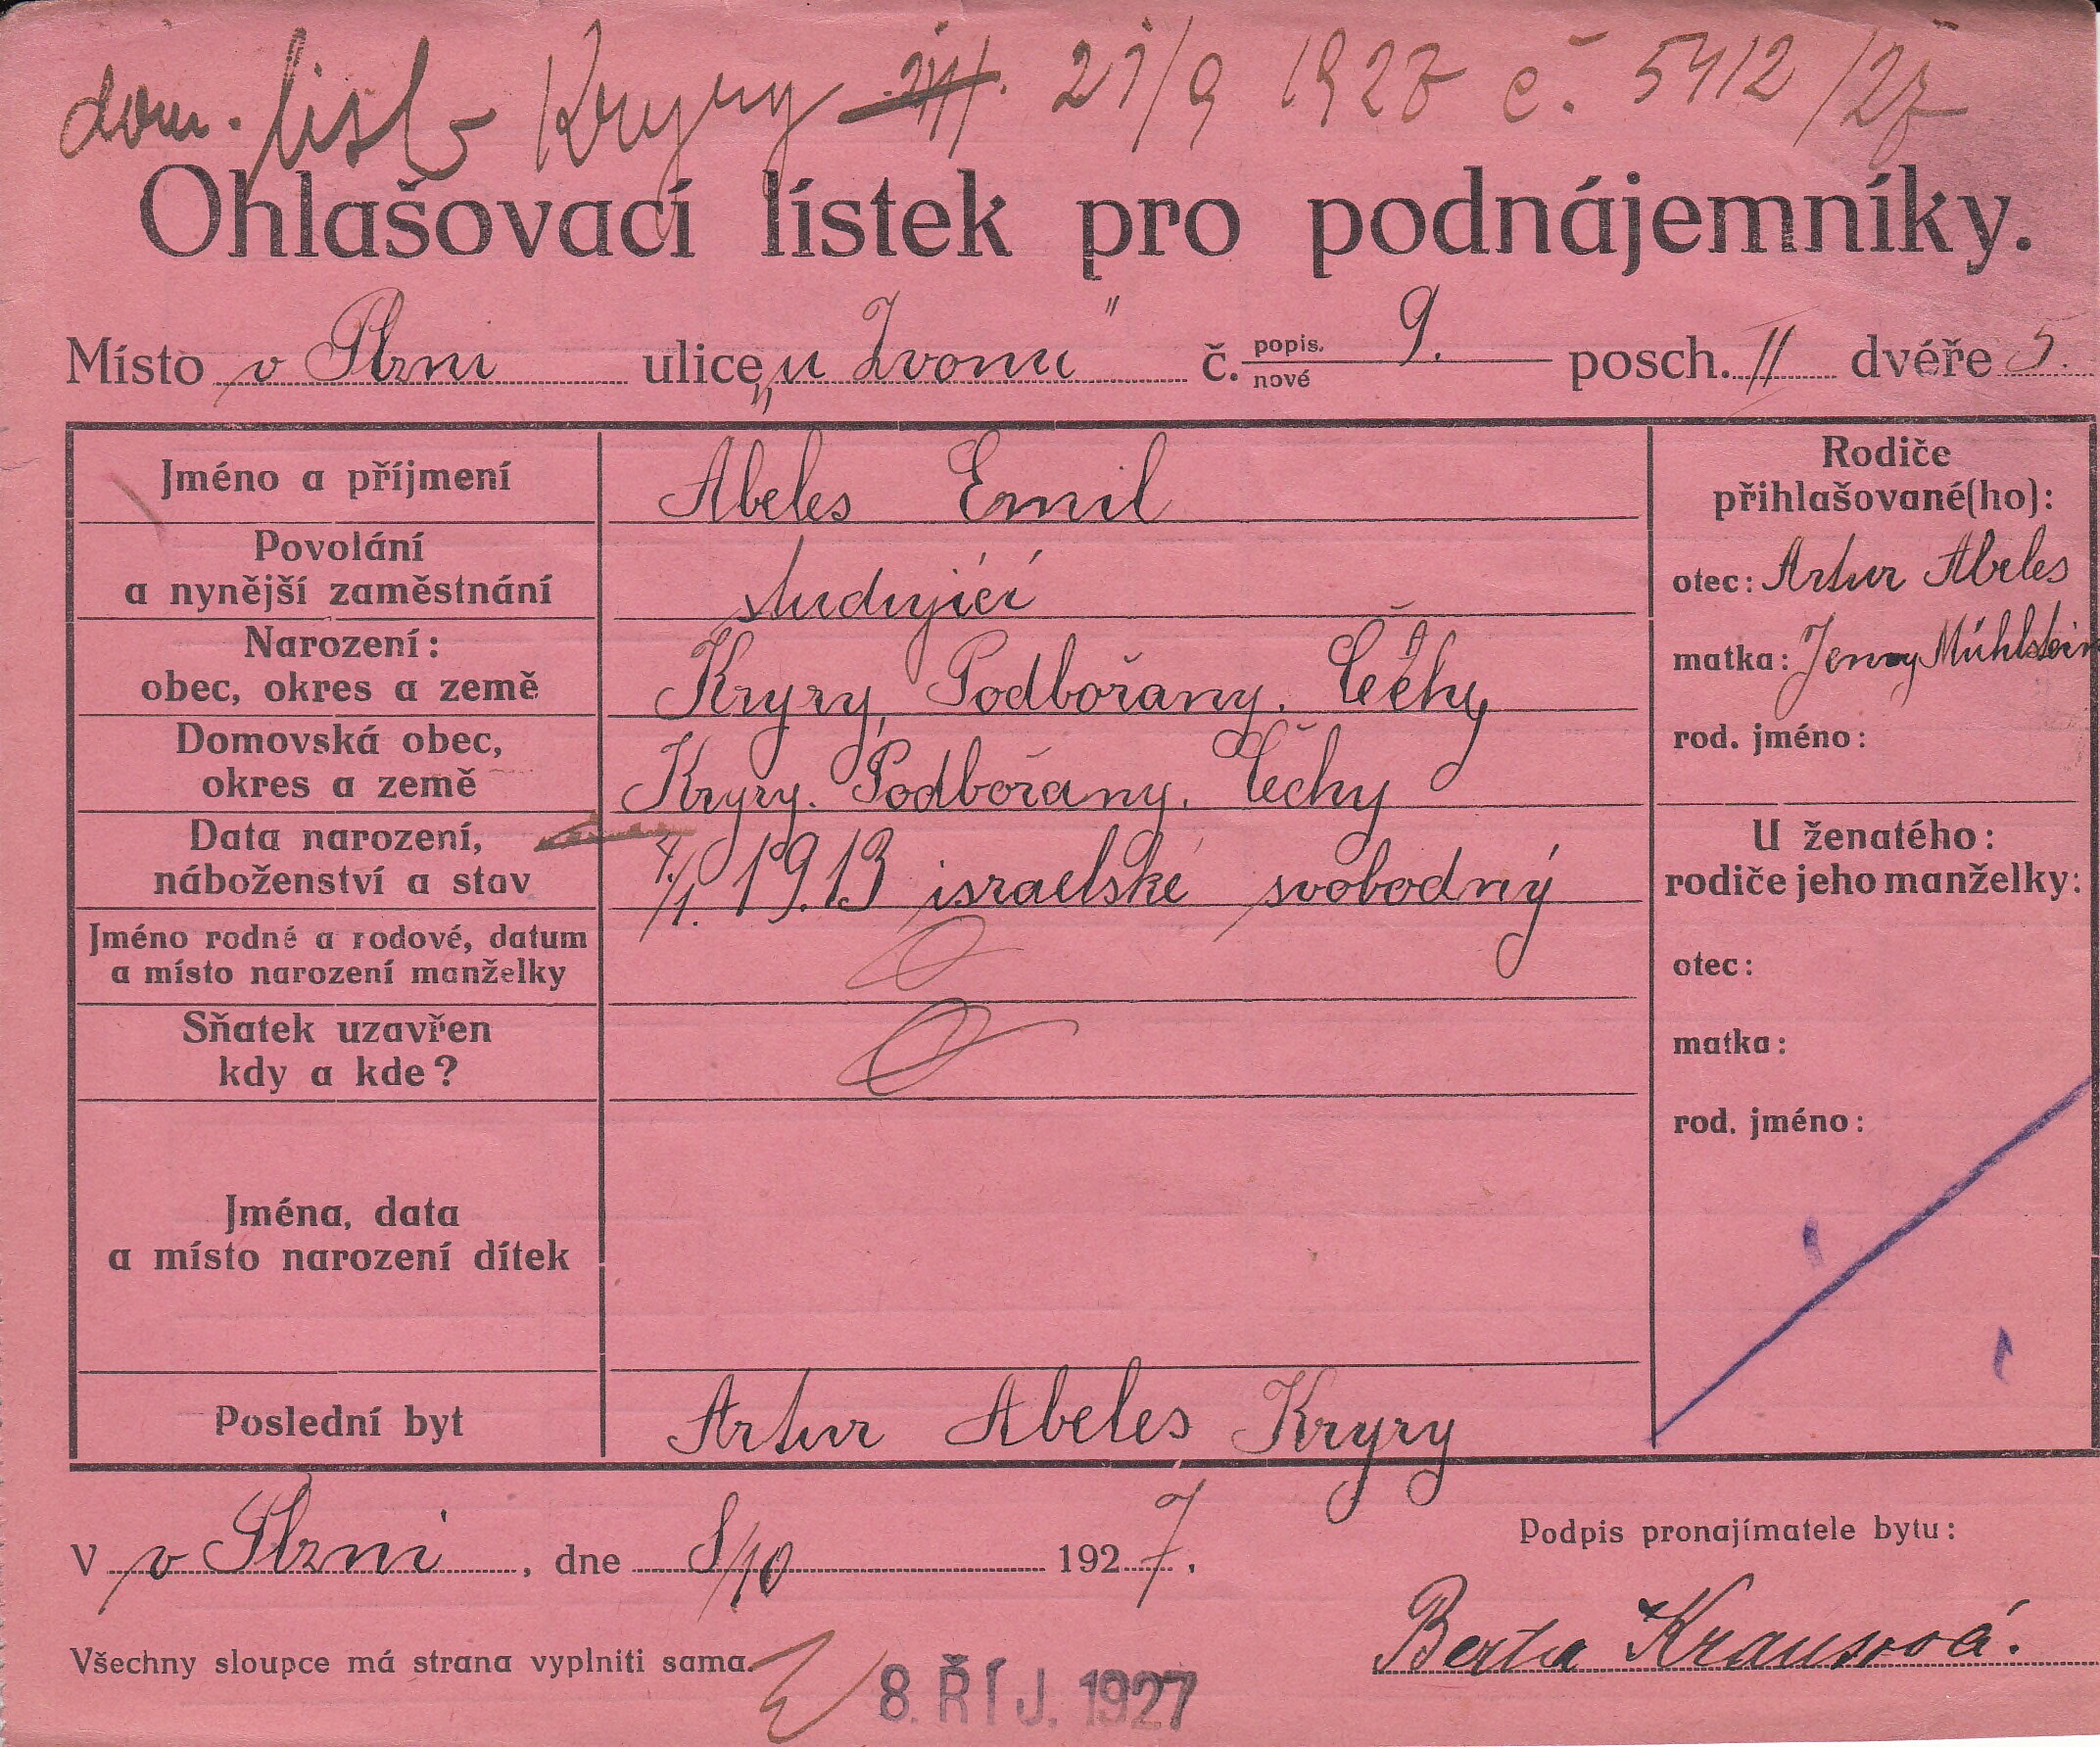 dom. list Kryry 21/9 1927 č. 5412/27
Ohlašovací lístek pro podnájemníky.
Místo v Plzni ulice „u Zvonu" č. popis. nové 9. posch. II dvéře 5.
Jméno a příjmení Abeles Emil
Povolání
a nynější zaměstnání studující
Narození:
obec, okres a země Kryry, Podbořany. Čechy
Domovská obec,
okres a země Kryry. Podbořany. Čechy
Data narození,
náboženství a stav 4./1. 1913 israelské svobodný
Jméno rodné a rodové, datum
a místo narození manželky
Sňatek uzavřen
kdy a kde?
Jména, data
a místo narození dítek
Poslední byt Artur Abeles Kryry
Rodiče
přihlašované(ho):
otec: Artur Abeles
matka: Jenny Mühlstein
rod. jméno:
U ženatého:
rodiče jeho manželky:
otec:
matka:
rod. jméno:
V v Plzni, dne 8/10 1927.
Podpis pronajímatele bytu:
Berta Krausová.
Všechny sloupce má strana vyplniti sama.
8. ŘÍJ. 1927